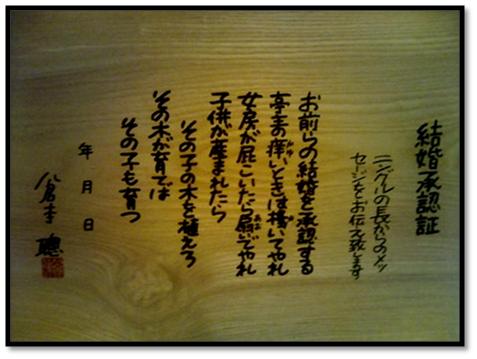 結婚承認証
ニングルの長からのメッ
セージをお伝え致します
お前らの結婚を承認する
亭主の痒いときは掻いてやれ
女房が屁こいたら扇いでやれ
子供が産まれたら
その子の木を植えろ
その木が育てば
その子も育つ
年 月 日
倉本 聰